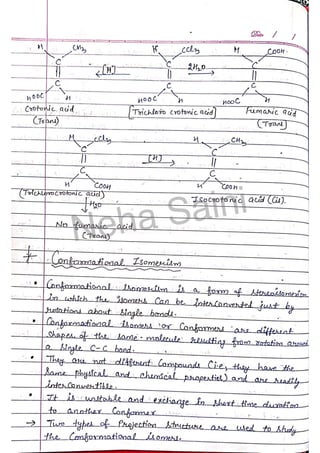 H CH3 H CCl3 H COOH
C C C
|| ←[H] || 2H2O→ ||
C C C
HOOC H HOOC H HOOC H
Crotonic acid [Trichloro crotonic acid] Fumaric acid
(Trans) (Trans)
H CCl3 H CH3
C C
|| [H]→ ||
C C
H COOH H COOH
(Trichlorocrotonic acid) Isocrotonic acid (Cis).
↓H2O
No fumaric acid
(trans)
Neha Saini
Conformational Isomerism
• Conformational isomerism is a form of stereoisomerism
in which the isomers can be interconverted just by
rotations about single bonds.
• Conformational isomers or Conformers are different
shapes of the same molecule resulting from rotation around
a single C-C bond.
• They are not different compounds (i.e, they have the
same physical and chemical properties) and are readily
interconvertible.
• It is unstable and exchange in short time duration
to another Conformer.
→ Two types of Projection structure are used to study
the Conformational isomers.